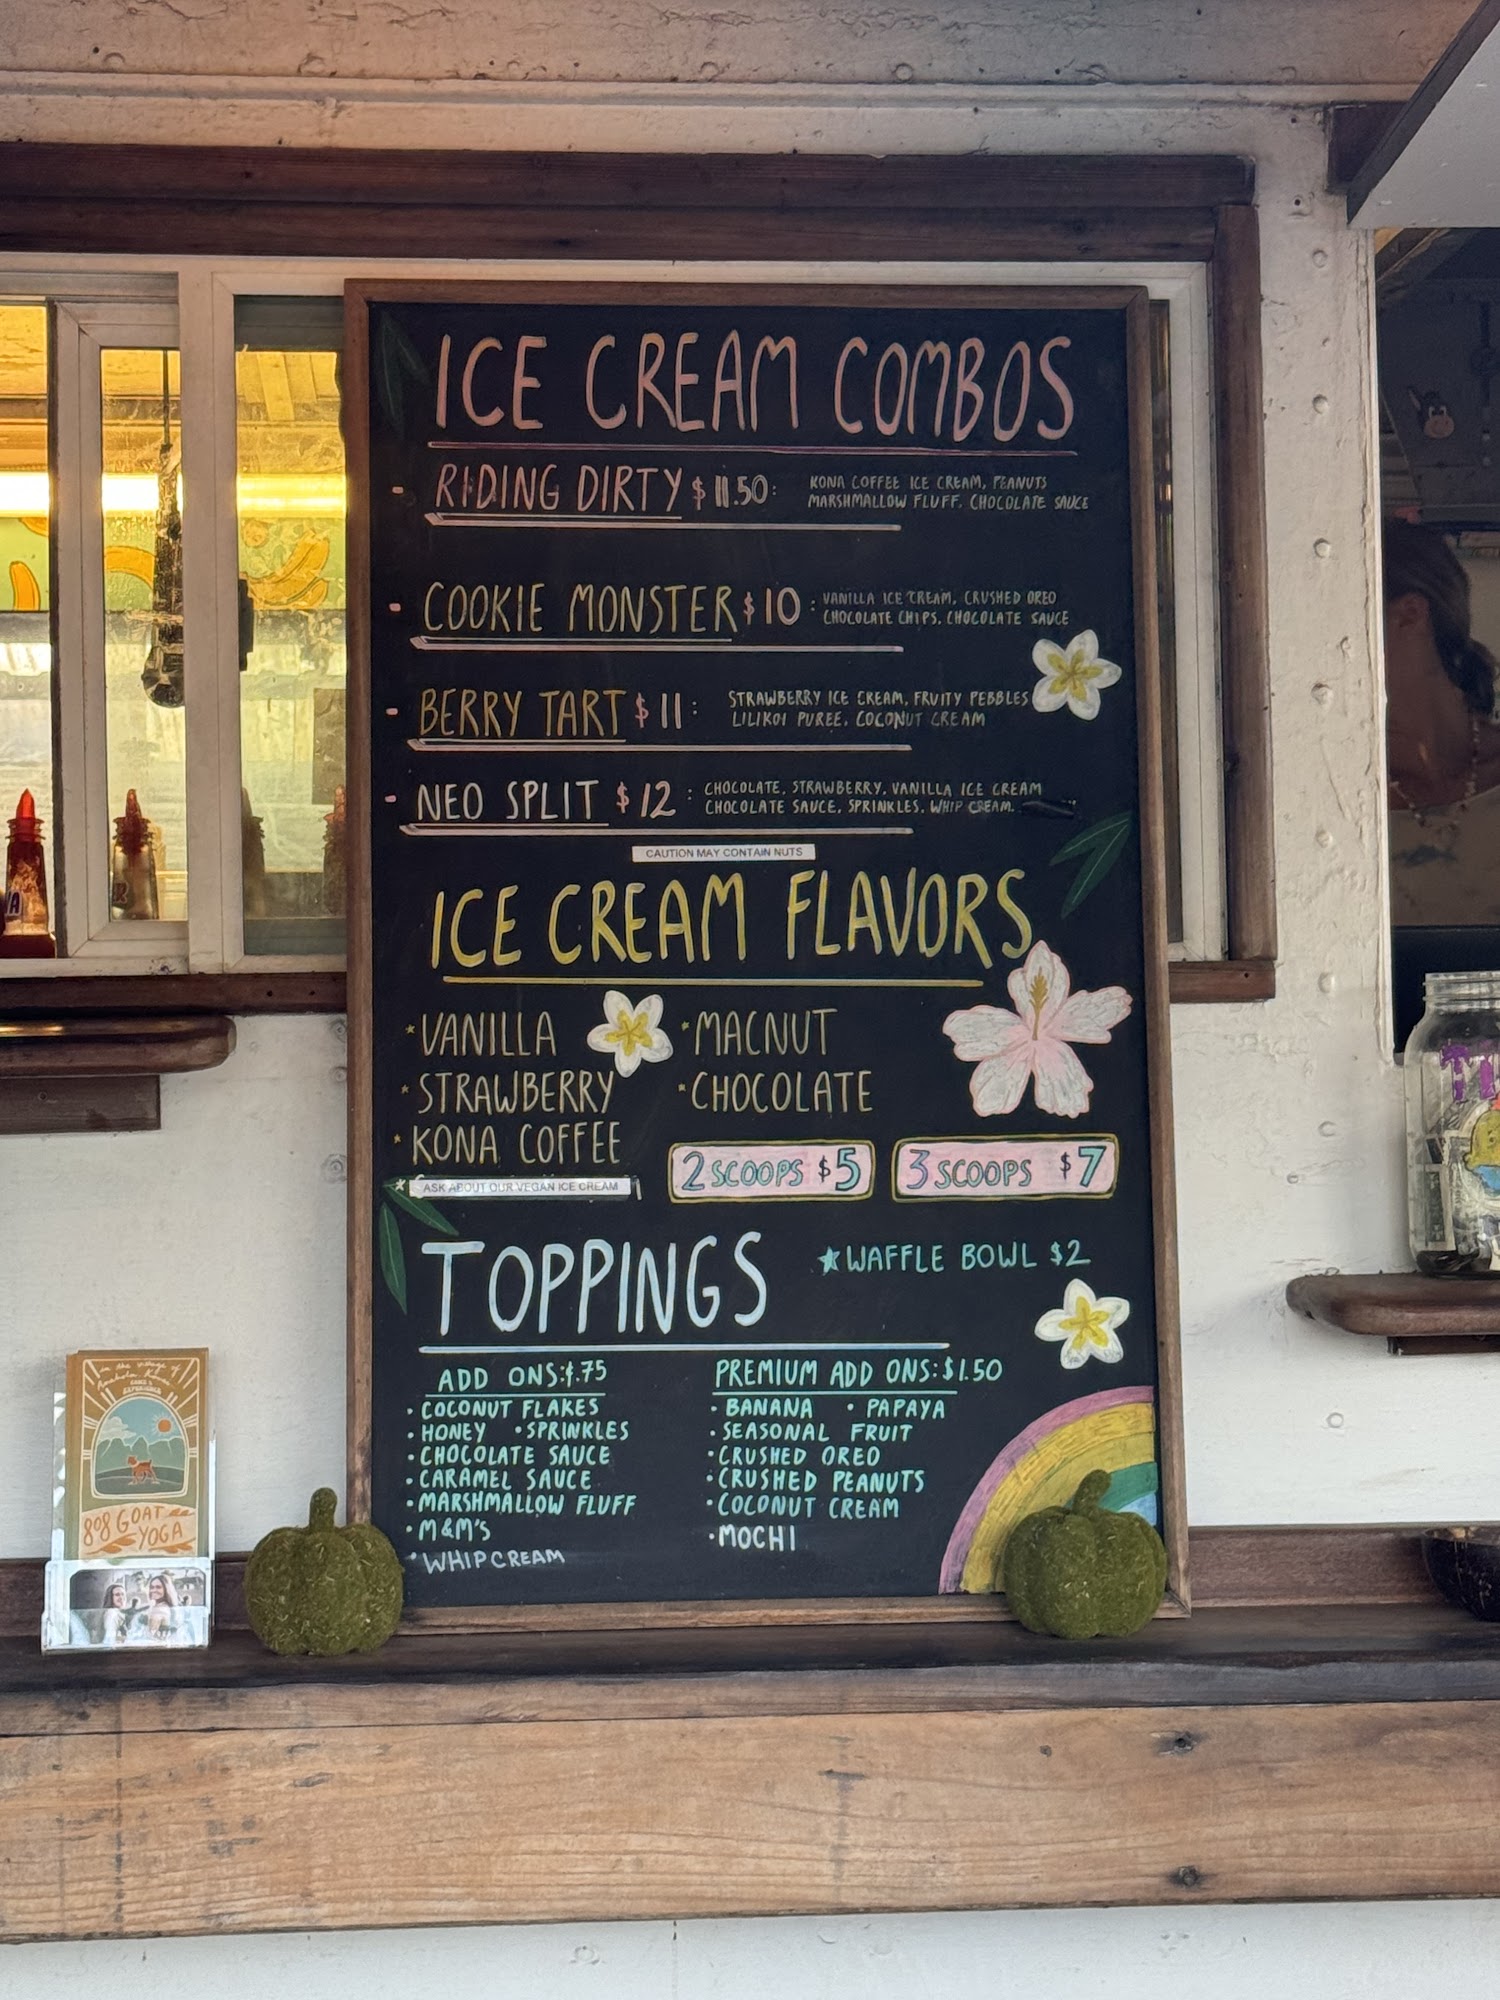 ICE CREAM COMBOS
- RIDING DIRTY $11.50: KONA COFFEE ICE CREAM, PEANUTS
MARSHMALLOW FLUFF, CHOCOLATE SAUCE
- COOKIE MONSTER $10: VANILLA ICE CREAM, CRUSHED OREO
CHOCOLATE CHIPS, CHOCOLATE SAUCE
- BERRY TART $11: STRAWBERRY ICE CREAM, FRUITY PEBBLES
LILIKOI PUREE, COCONUT CREAM
- NEO SPLIT $12: CHOCOLATE, STRAWBERRY, VANILLA ICE CREAM
CHOCOLATE SAUCE, SPRINKLES, WHIP CREAM.
CAUTION MAY CONTAIN NUTS
ICE CREAM FLAVORS
VANILLA
STRAWBERRY
KONA COFFEE
MACNUT
CHOCOLATE
ASK ABOUT OUR VEGAN ICE CREAM
2 SCOOPS $5
3 SCOOPS $7
TOPPINGS
★WAFFLE BOWL $2
ADD ONS:$.75
• COCONUT FLAKES
• HONEY • SPRINKLES
• CHOCOLATE SAUCE
• CARAMEL SAUCE
• MARSHMALLOW FLUFF
• M&M'S
• WHIP CREAM
PREMIUM ADD ONS:$1.50
• BANANA • PAPAYA
• SEASONAL FRUIT
• CRUSHED OREO
• CRUSHED PEANUTS
• COCONUT CREAM
• MOCHI
in the village of
Anahola, Kauai
EXPERIENCE
808 GOAT
YOGA